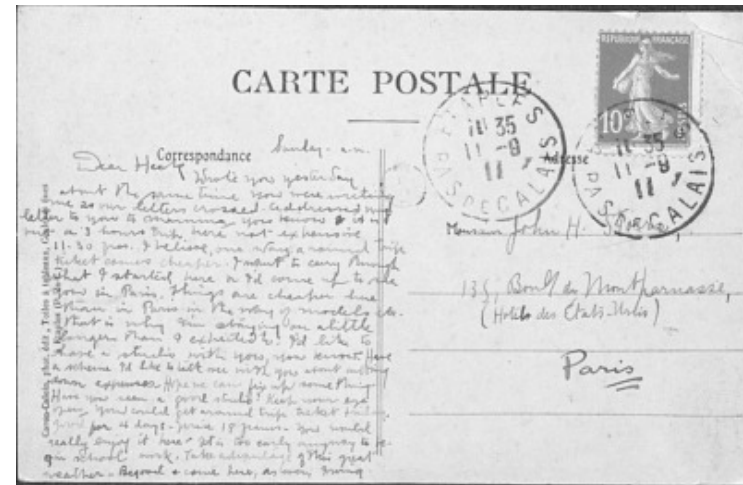 CARTE POSTALE
REPUBLIQUE FRANÇAISE
10
ETAPLES
11 35
11 - 9
11
PAS DE CALAIS
11 35
11 - 9
11
PAS DE CALAIS
Correspondance
Adresse
Sunday - a.m.
Dear
Wrote you yesterday
about the same time you were writing
me as our letters crossed. Addressed my
letter to you to
a 3 hours trip here not expensive
11-30 I believe, one way, a round trip
ticket comes cheaper. I want to carry through
what I started here or I'd come up to
now in Paris. Things are cheaper here
than in Paris in the way of models etc.
That is why I'm staying on a little
longer than I expected. I'd like to
have a studio with you, you know. Have
a scheme I'd like to talk over with you about cutting
down expenses. Hope we can fix up something
Have you seen a good studio? Keep your eye
open. You could get around trip ticket
good for 4 days - price 18 francs. You would
really enjoy it here. It is too early anyway to be-
gin school work. Take advantage of this great
weather - Be good & come here, as ever Irving
Monsieur John H.
135, Boul. du Montparnasse,
(Hotel des États-Unis)
Paris